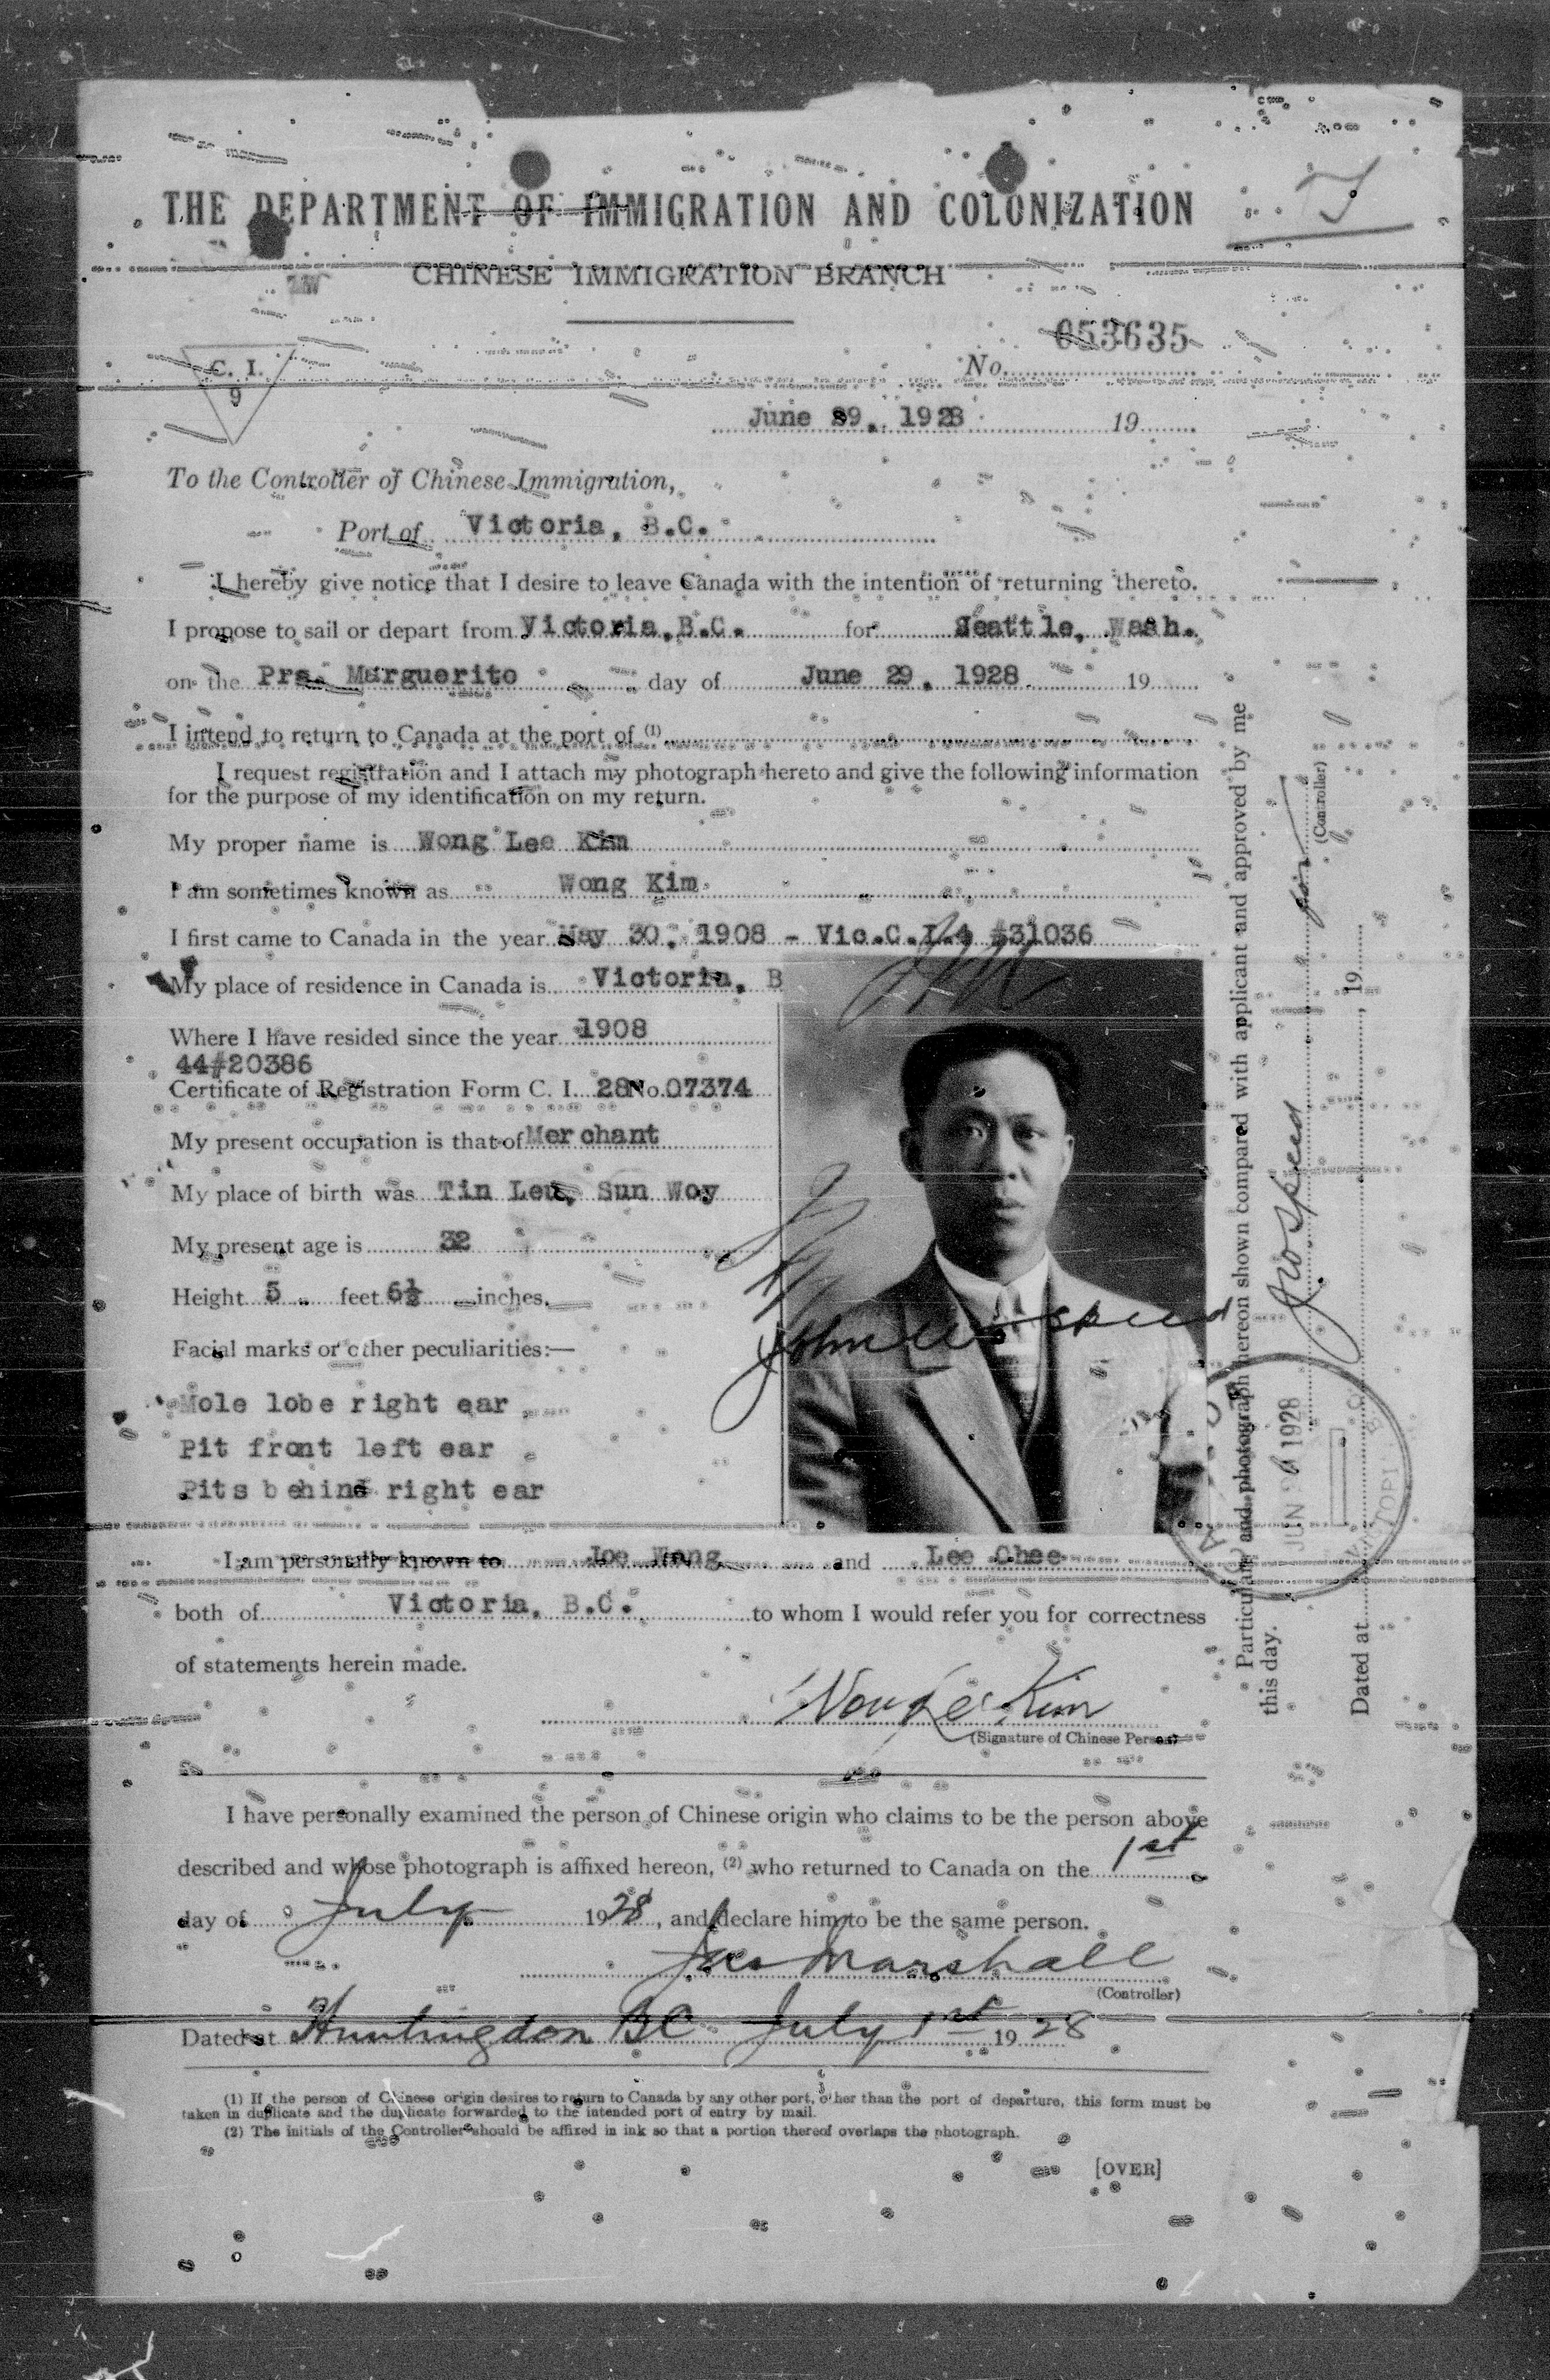 THE DEPARTMENT OF IMMIGRATION AND COLONIZATION
CHINESE IMMIGRATION BRANCH
053635
No.
C. I.
9
June 29, 1928 19
To the Controller of Chinese Immigration,
Port of Victoria, B.C.
I hereby give notice that I desire to leave Canada with the intention of returning thereto.
I propose to sail or depart from Victoria, B.C. for Seattle, Wash.
on the Prs. Marguerito day of June 29, 1928 19
I intend to return to Canada at the port of (1)
I request registration and I attach my photograph hereto and give the following information
for the purpose of my identification on my return.
My proper name is Wong Lee Kim
I am sometimes known as Wong Kim
I first came to Canada in the year May 30, 1908 - Vic.C.I.4 #31036
My place of residence in Canada is Victoria, B
Where I have resided since the year 1908
44#20386
Certificate of Registration Form C. I. 28 No. 07374
My present occupation is that of Merchant
My place of birth was Tin Leu, Sun Woy
My present age is 32
Height 5 feet 6½ inches.
Facial marks or other peculiarities:—
Mole lobe right ear
Pit front left ear
Pits behind right ear
I am personally known to Joe Wong and Lee Chee
both of Victoria, B.C. to whom I would refer you for correctness
of statements herein made.
Wong Lee Kim
(Signature of Chinese Person)
I have personally examined the person of Chinese origin who claims to be the person above
described and whose photograph is affixed hereon, (2) who returned to Canada on the 1st
day of July 1928, and declare him to be the same person.
Jas Marshall
(Controller)
Dated at Huntingdon BC July 1st 1928
(1) If the person of Chinese origin desires to return to Canada by any other port, other than the port of departure, this form must be
taken in duplicate and the duplicate forwarded to the intended port of entry by mail.
(2) The initials of the Controller should be affixed in ink so that a portion thereof overlaps the photograph.
[OVER]
Particulars and photograph hereon shown compared with applicant and approved by me
this day.
(Controller)
Dated at 19
JUN 1928